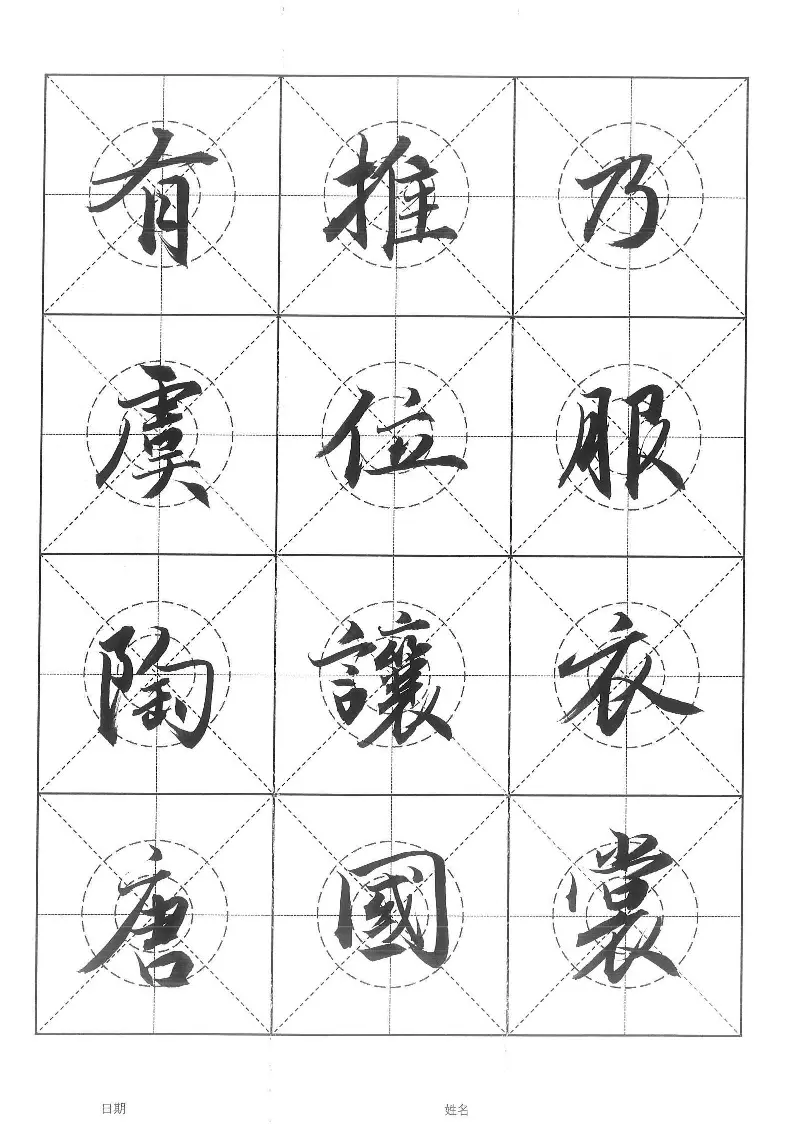 乃服衣裳
推位讓國
有虞陶唐
日期
姓名